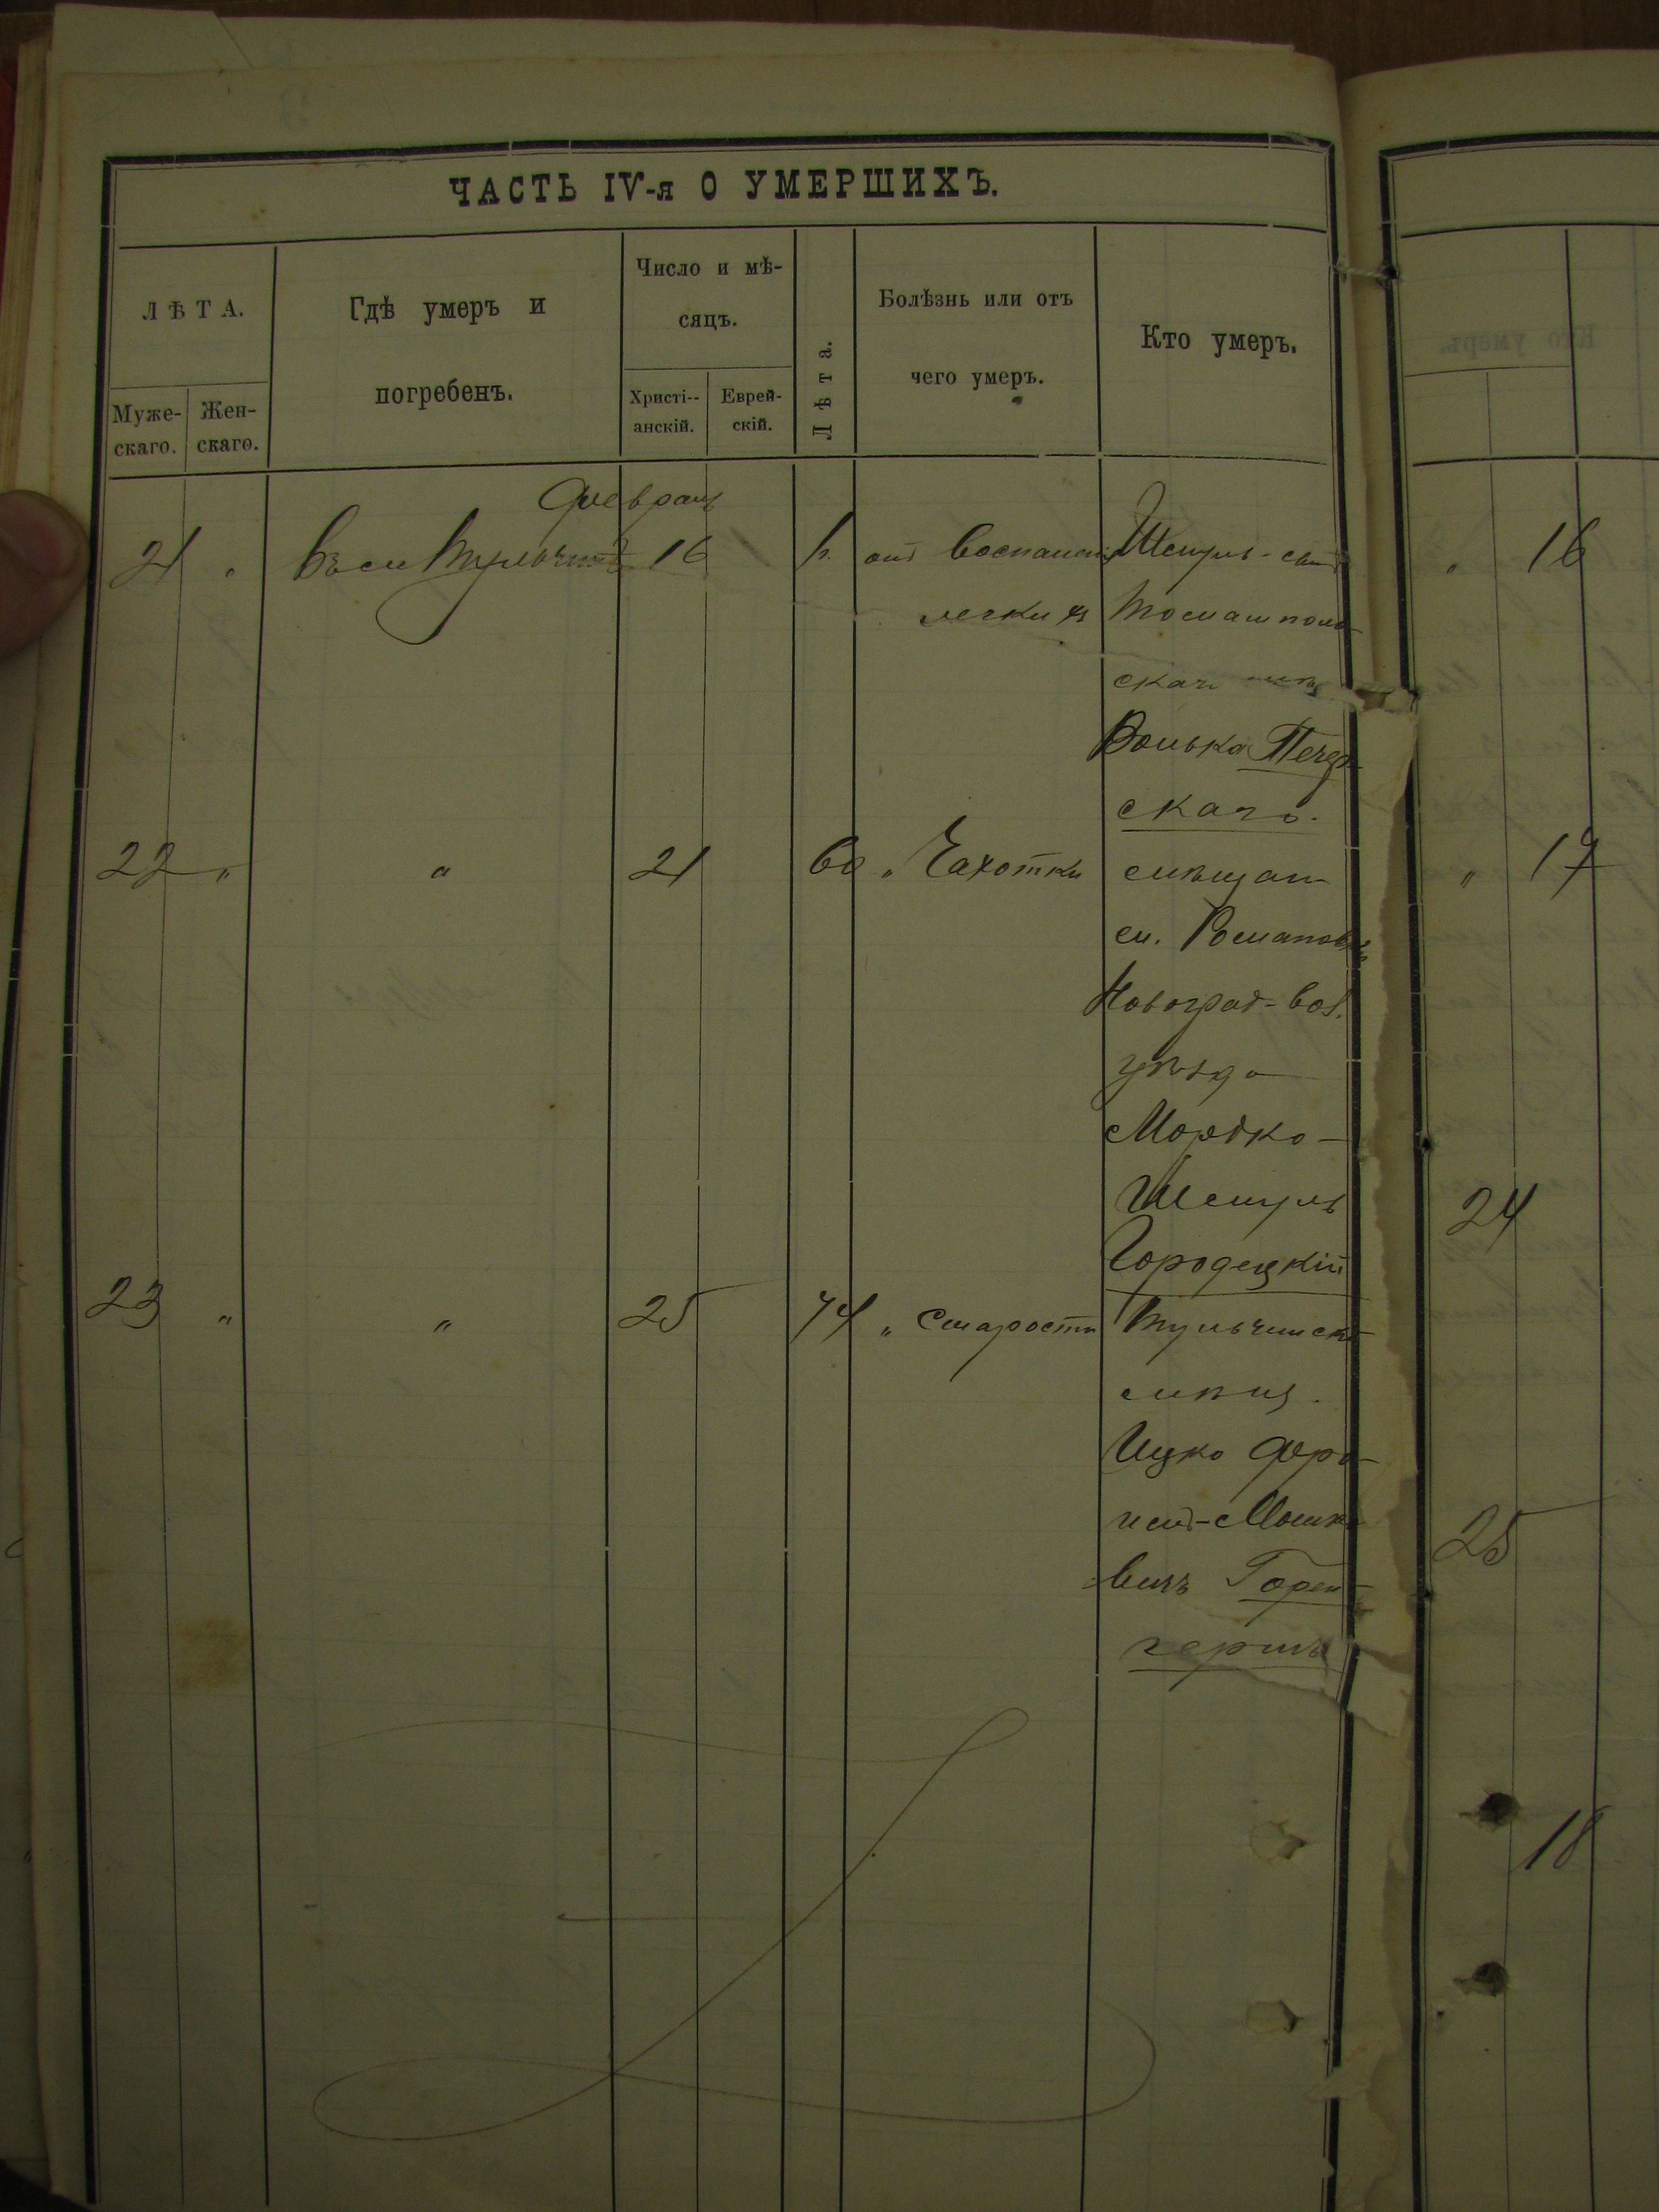 ЧАСТЬ IV-я О УМЕРШИХЪ.
ЛѢТА.
Муже-
скаго.
Жен-
скаго.
Гдѣ умеръ и
погребенъ.
Число и мѣ-
сяцъ.
Христі--
анскій.
Еврей-
скій.
Лѣта.
Болѣзнь или отъ
чего умеръ.
Кто умеръ.
Кто умеръ.
Февраль
21 " въ м Тульчинѣ 16 отъ Воспаленія
легкихъ
Шмуль - сынъ
Томашполь
скаго
Волька Печер
скаго.
22 " " 21 60 " Чахотки
мѣщан
м. Романова
Новоград-Вол.
уѣзда
Мордко-
Шмуль
Городецкій
23 " " 25 74 " Старости
Тульчинскій
мѣщ.
Ицко Фро
имъ-Мошко
вичъ Горен
" 16
" 17
24
25
18